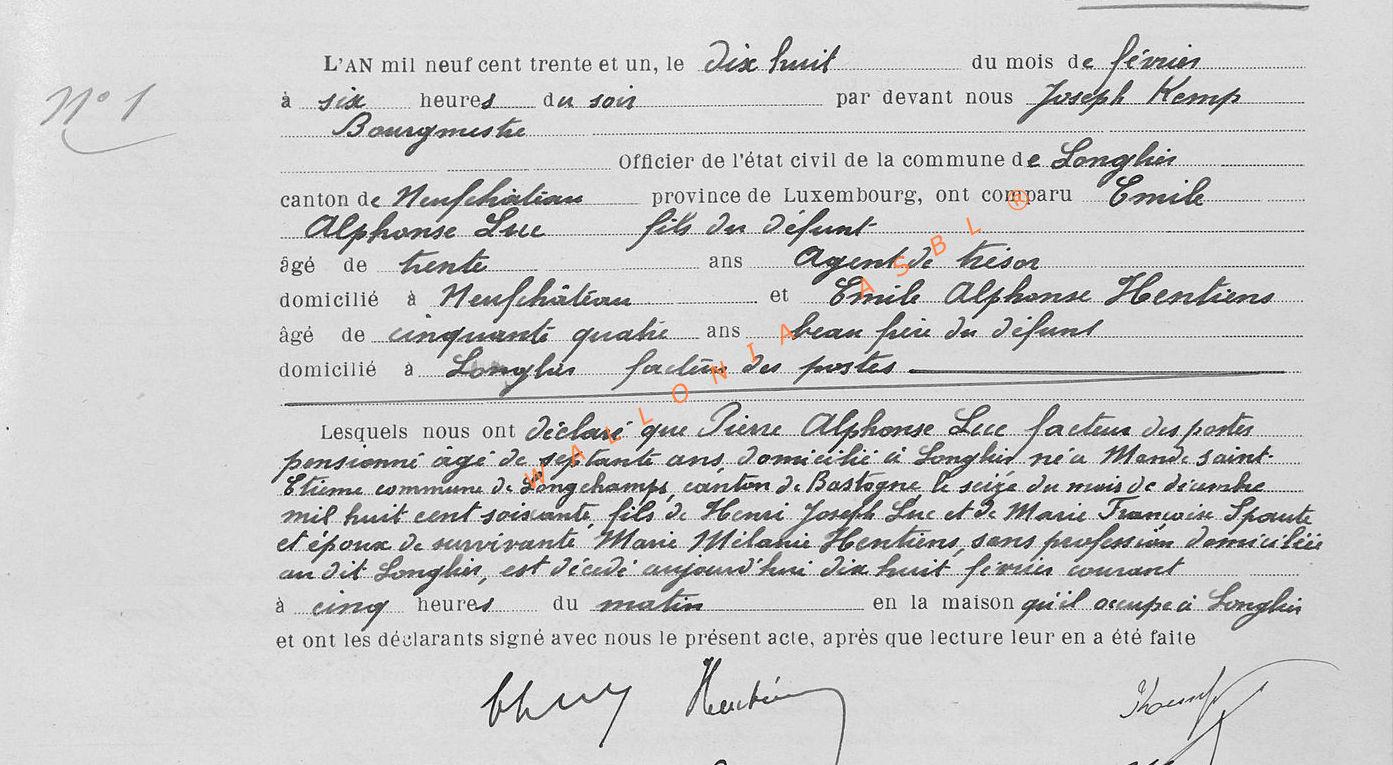 L'AN mil neuf cent trente et un, le dix huit du mois de février
N° 1
à six heures du soir par devant nous Joseph Kemp
Bourgmestre
Officier de l'état civil de la commune de Longlier
canton de Neufchâteau province de Luxembourg, ont comparu Emile
Alphonse Luc fils du défunt
âgé de trente ans Agent de trésor
domicilié à Neufchâteau et Emile Alphonse Hentiens
âgé de cinquante quatre ans beau frère du défunt
domicilié à Longlier facteur des postes
Lesquels nous ont déclaré que Pierre Alphonse Luc facteur des postes
pensionné âgé de septante ans, domicilié à Longlier né à Mande Saint-
Etienne commune de Longchamps, canton de Bastogne, le seize du mois de décembre
mil huit cent soixante, fils de Henri Joseph Luc et de Marie Françoise Spoute
et époux de survivante Marie Mélanie Hentiens, sans profession domiciliée
au dit Longlier, est décédé aujourd'hui dix huit février courant
à cinq heures du matin en la maison qu'il occupe à Longlier
et ont les déclarants signé avec nous le présent acte, après que lecture leur en a été faite
Hentiens
WALLONIA ASBL ®